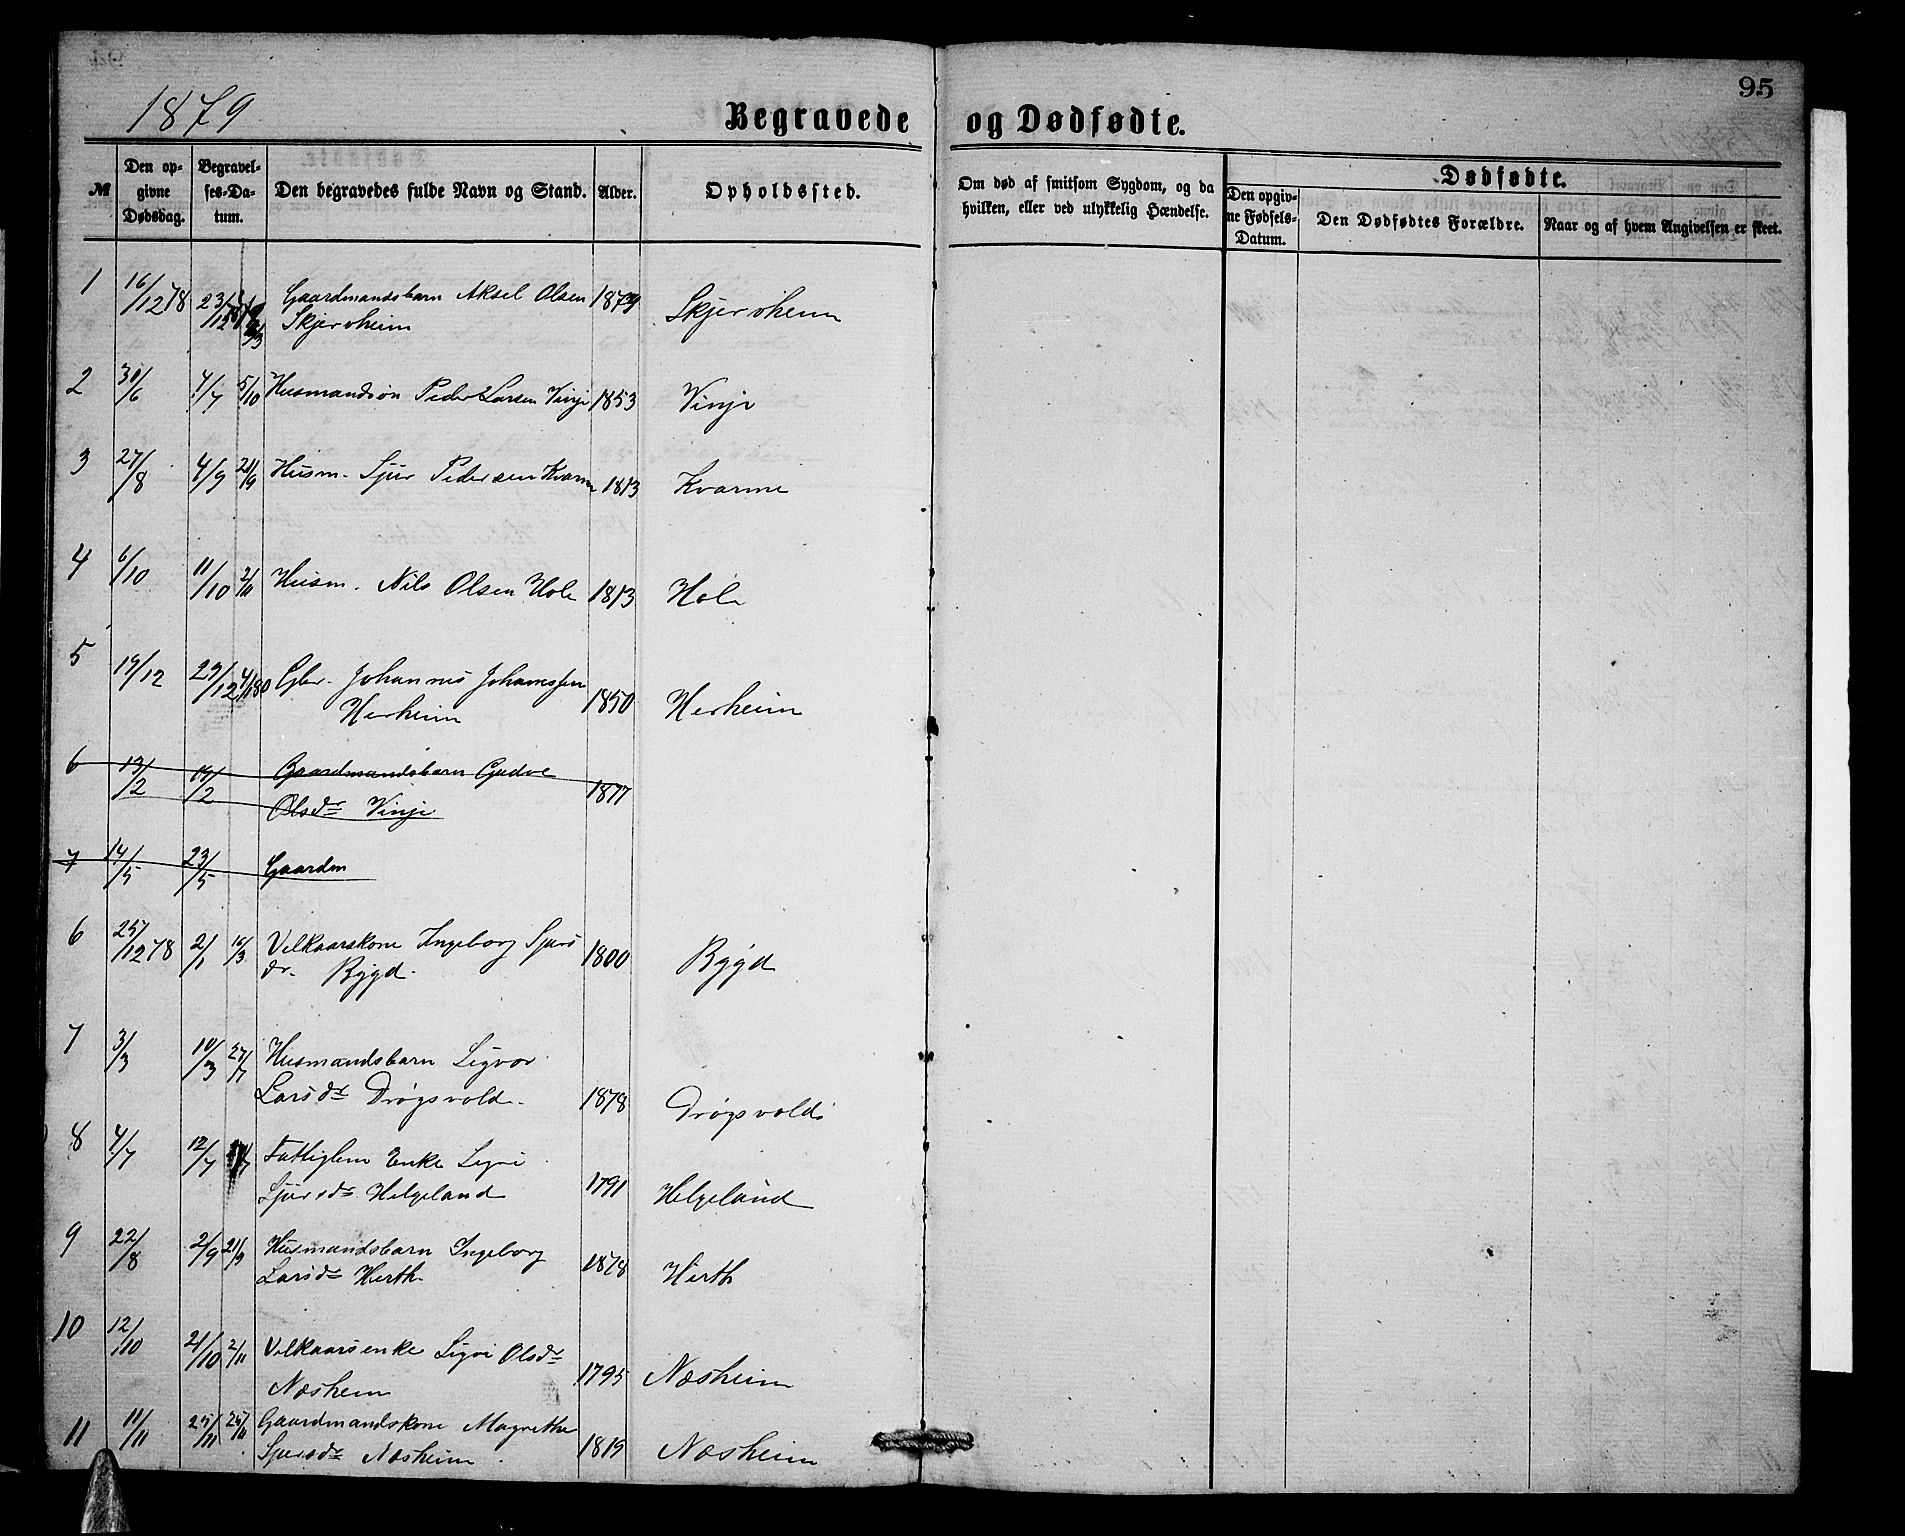 95
1879 Begravede og Dødfødte.
№ Den opgivne Dødsdag. Begravelses-Datum. Den begravedes fulde Navn og Stand. Alder. Opholdssted. Om død af smitsom Sygdom, og da hvilken, eller ved ulykkelig Hændelse. Dødfødte. Den opgivne Fødsels-Datum. Den Dødfødtes Forældre. Naar og af hvem Angivelsen er skeet.
1 16/12 78 23/12 78 Gaardmandsbarn Aksel Olsen 1879
Skjerveheim Skjervheim
2 30/6 4/7 5/10 Husmandsøn Peder Larsen Vinje 1853 Vinje
3 27/8 4/9 21/9 Husm. Sjur Pedersen Kvarme 1813 Kvarme
4 6/10 11/10 2/11 Husm. Nils Olsen Hole 1813 Hole
5 19/12 29/12 4/1 80 Gbr. Johannes Johannessen
Herheim 1850 Herheim
6 13/2 19/2 Gaardmandsbarn Gudve
Olsdr Vinje 1877
7 14/5 23/5 Gaardm
6 25/12 78 2/1 16/3 Velkaarskone Ingeborg Sjurs 1800
dr. Rygd. Rygd
7 3/3 10/3 27/7 Husmandsbarn Sigvor
Larsdr Drøgsvold. 1878 Drøgsvold
8 4/7 12/7 Fattiglem Enke Sigvi
Sjursdr Helgeland 1791 Helgeland
9 22/8 2/9 21/9 Husmandsbarn Ingeborg
Larsdr Herth. 1878 Herth
10 12/10 21/10 2/11 Velkaarsenke Sigvi Olsdr
Næsheim 1795 Næsheim
11 11/11 25/11 26/11 Gaardmandskone Magrethe
Sjursdr Næsheim 1819 Næsheim